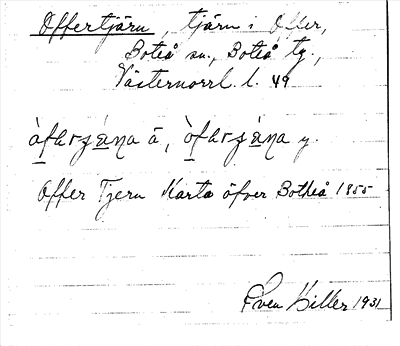 Offertjärn, tjärn i Offer,
Boteå sn., Boteå tg.,
Västernorrl. l. 49
ä, y.
Offer Tjern Karta öfver Botheå 1855
Sven Hiller 1931